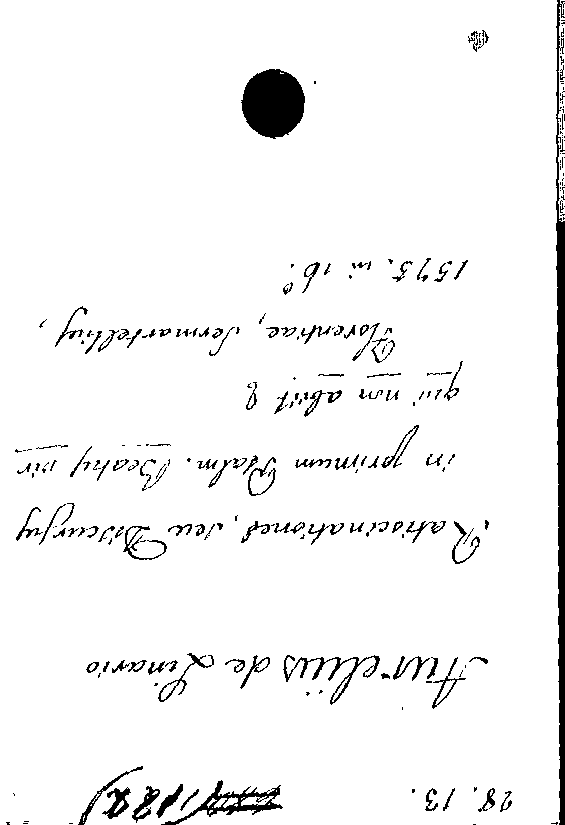 28.13.
Aurelius de Linario
Ratiocinationes, seu Discursus
in primum Psalm. Beatus vir
qui non abiit &
Florentiae, Sermartellius,
1575. in 16°.